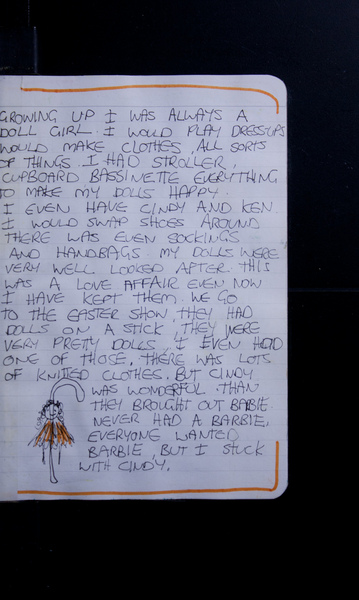 GROWING UP I WAS ALWAYS A
DOLL GIRL. I WOULD PLAY DRESSUPS
WOULD MAKE CLOTHES, ALL SORTS
OF THINGS. I HAD STROLLER,
CUPBOARD BASSINETTE EVERYTHING
TO MAKE MY DOLLS HAPPY.
I EVEN HAVE CINDY AND KEN
I WOULD SWAP SHOES AROUND
THERE WAS EVEN SOCKINGS
AND HANDBAGS. MY DOLLS WERE
VERY WELL LOOKED AFTER. THIS
WAS A LOVE AFFAIR EVEN NOW
I HAVE KEPT THEM. WE GO
TO THE EASTER SHOW, THEY HAD
DOLLS ON A STICK, THEY WERE
VERY PRETTY DOLLS, I EVEN HAD
ONE OF THOSE. THERE WAS LOTS
OF KNITTED CLOTHES. BUT CINDY
WAS WONDERFUL. THAN
THEY BROUGHT OUT BABIE.
NEVER HAD A BARBIE,
EVERYONE WANTED
BARBIE, BUT I STUCK
WITH CINDY.